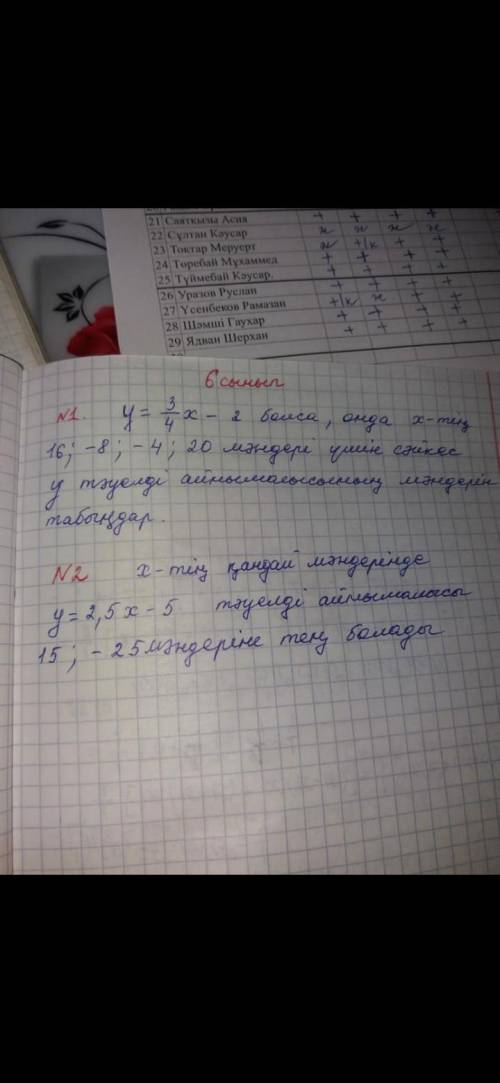 21 Саятқызы Асия + + + +
22 Сұлтан Кәусар н н н н
23 Тоқтар Меруерт н +/к + +
24 Төребай Мұхаммед + + + +
25 Түймебай Кәусар. + + + +
26 Уразов Руслан + + + +
27 Үсенбеков Рамазан +/к н + +
28 Шәмші Гаухар + + + +
29 Ядван Шерхан + + + +
6 сынып
№1. y = 3/4 x - 2 болса, онда x-тің
16; -8; -4; 20 мәндері үшін сәйкес
y тәуелді айнымалысының мәндерін
табыңдар.
№2 x-тің қандай мәндерінде
y = 2,5x - 5 тәуелді айнымалысы
15; -25 мәндеріне тең болады